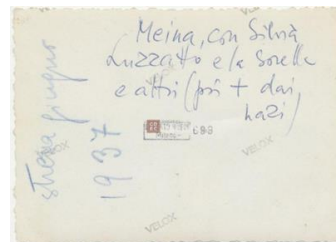 Meina, con Silvia
Luzzatto e la sorella
e altri (poi + dai
nazi)
Stresa giugno
1937
698
VELOX
VELOX
VELOX